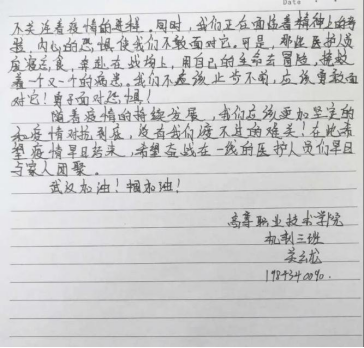 不关注着疫情的进程，同时，我们正在面临着精神上的考
验，内心的恐惧使我们不敢面对它。可是，那些医护人员
废寝忘食，奔赴在战场上，用自己的生命去冒险，拯救
着一个又一个的病患。我们不应该止步不前，应该勇敢面
对它！勇于面对恐惧！
随着疫情的持续发展，我们应该更加坚定的
和疫情对抗到底，没有我们渡不过的难关！在此希
望疫情早日结束，希望奋战在一线的医护人员们早日
与家人团聚。
武汉加油！中国加油！
高等职业技术学院
机制三班
吴云龙